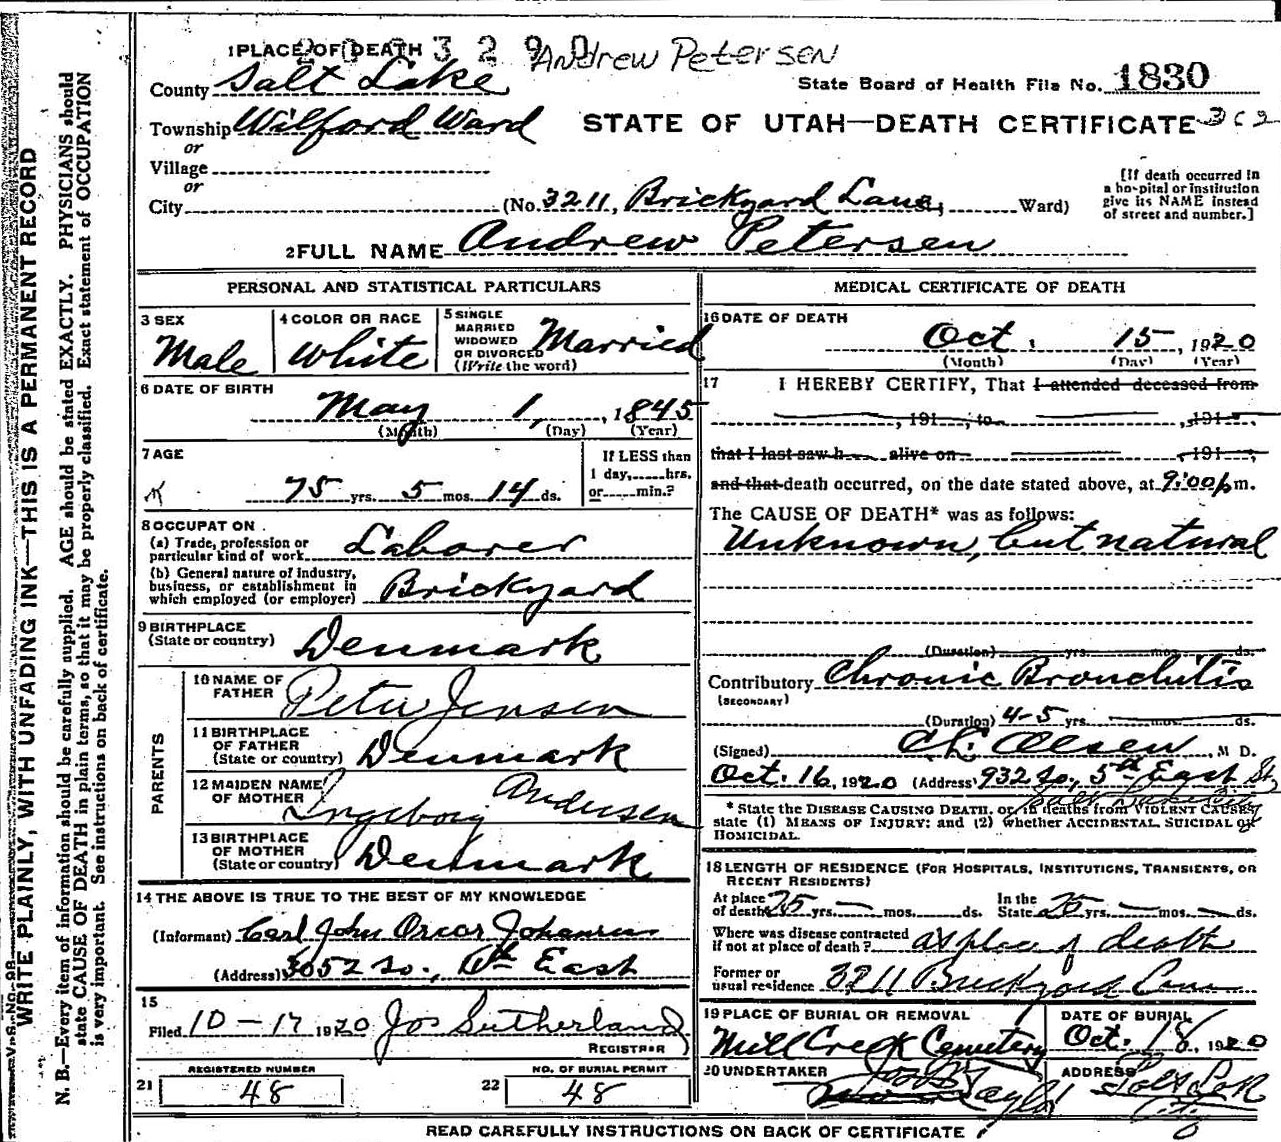 WRITE PLAINLY, WITH UNFADING INK—THIS IS A PERMANENT RECORD
N. B.—Every item of information should be carefully supplied. AGE should be stated EXACTLY. PHYSICIANS should
state CAUSE OF DEATH in plain terms, so that it may be properly classified. Exact statement of OCCUPATION
is very important. See instructions on back of certificate.
1 PLACE OF DEATH
3 2 9 0
Andrew Petersen
County Salt Lake
State Board of Health File No. 1830
Township Wilford Ward
STATE OF UTAH—DEATH CERTIFICATE
or
Village
or
City (No. 3211, Brickyard Lane, Ward)
[If death occurred in
a hospital or institution
give its NAME instead
of street and number.]
2 FULL NAME Andrew Petersen
PERSONAL AND STATISTICAL PARTICULARS
3 SEX Male
4 COLOR OR RACE White
5 SINGLE
MARRIED
WIDOWED
OR DIVORCED
(Write the word) Married
6 DATE OF BIRTH
May 1, 1845
(Month) (Day) (Year)
7 AGE
75 yrs. 5 mos. 14 ds.
If LESS than
1 day, hrs.
or min.?
8 OCCUPATON
(a) Trade, profession or
particular kind of work Laborer
(b) General nature of Industry,
business, or establishment in
which employed (or employer) Brickyard
9 BIRTHPLACE
(State or country) Denmark
PARENTS
10 NAME OF
FATHER Peter Jensen
11 BIRTHPLACE
OF FATHER
(State or country) Denmark
12 MAIDEN NAME
OF MOTHER Ingeborg Andersen
13 BIRTHPLACE
OF MOTHER
(State or country) Denmark
14 THE ABOVE IS TRUE TO THE BEST OF MY KNOWLEDGE
(Informant) Carl John Oscar Johansen
(Address) 3052 So., 6th East
15
Filed 10-17 1920 Jos Sutherland
REGISTRAR
REGISTERED NUMBER
21 48
NO. OF BURIAL PERMIT
22 48
MEDICAL CERTIFICATE OF DEATH
16 DATE OF DEATH
Oct. 15, 1920
(Month) (Day) (Year)
17 I HEREBY CERTIFY, That I attended deceased from
, 191 , to , 191 ,
that I last saw h alive on , 191 ,
and that death occurred, on the date stated above, at 9:00 p m.
The CAUSE OF DEATH* was as follows:
Unknown, but natural
(Duration) yrs. mos. ds.
Contributory Chronic Bronchitis
(SECONDARY)
(Duration) 4-5 yrs. mos. ds.
(Signed) Olsen, M D.
Oct. 16, 1920 (Address) 932 So., 5th East St,
Salt Lake City
* State the DISEASE CAUSING DEATH, or, in deaths from VIOLENT CAUSES
state (1) MEANS OF INJURY; and (2) whether ACCIDENTAL, SUICIDAL OR
HOMICIDAL.
18 LENGTH OF RESIDENCE (FOR HOSPITALS, INSTITUTIONS, TRANSIENTS, OR
RECENT RESIDENTS)
At place
of death 25 yrs. — mos. ds. In the
State 25 yrs. — mos. — ds.
Where was disease contracted
if not at place of death? at place of death
Former or
usual residence 3211 Brickyard Lane
19 PLACE OF BURIAL OR REMOVAL
Mill Creek Cemetery
DATE OF BURIAL
Oct. 18, 1920
20 UNDERTAKER
ADDRESS Salt Lake
City
READ CAREFULLY INSTRUCTIONS ON BACK OF CERTIFICATE